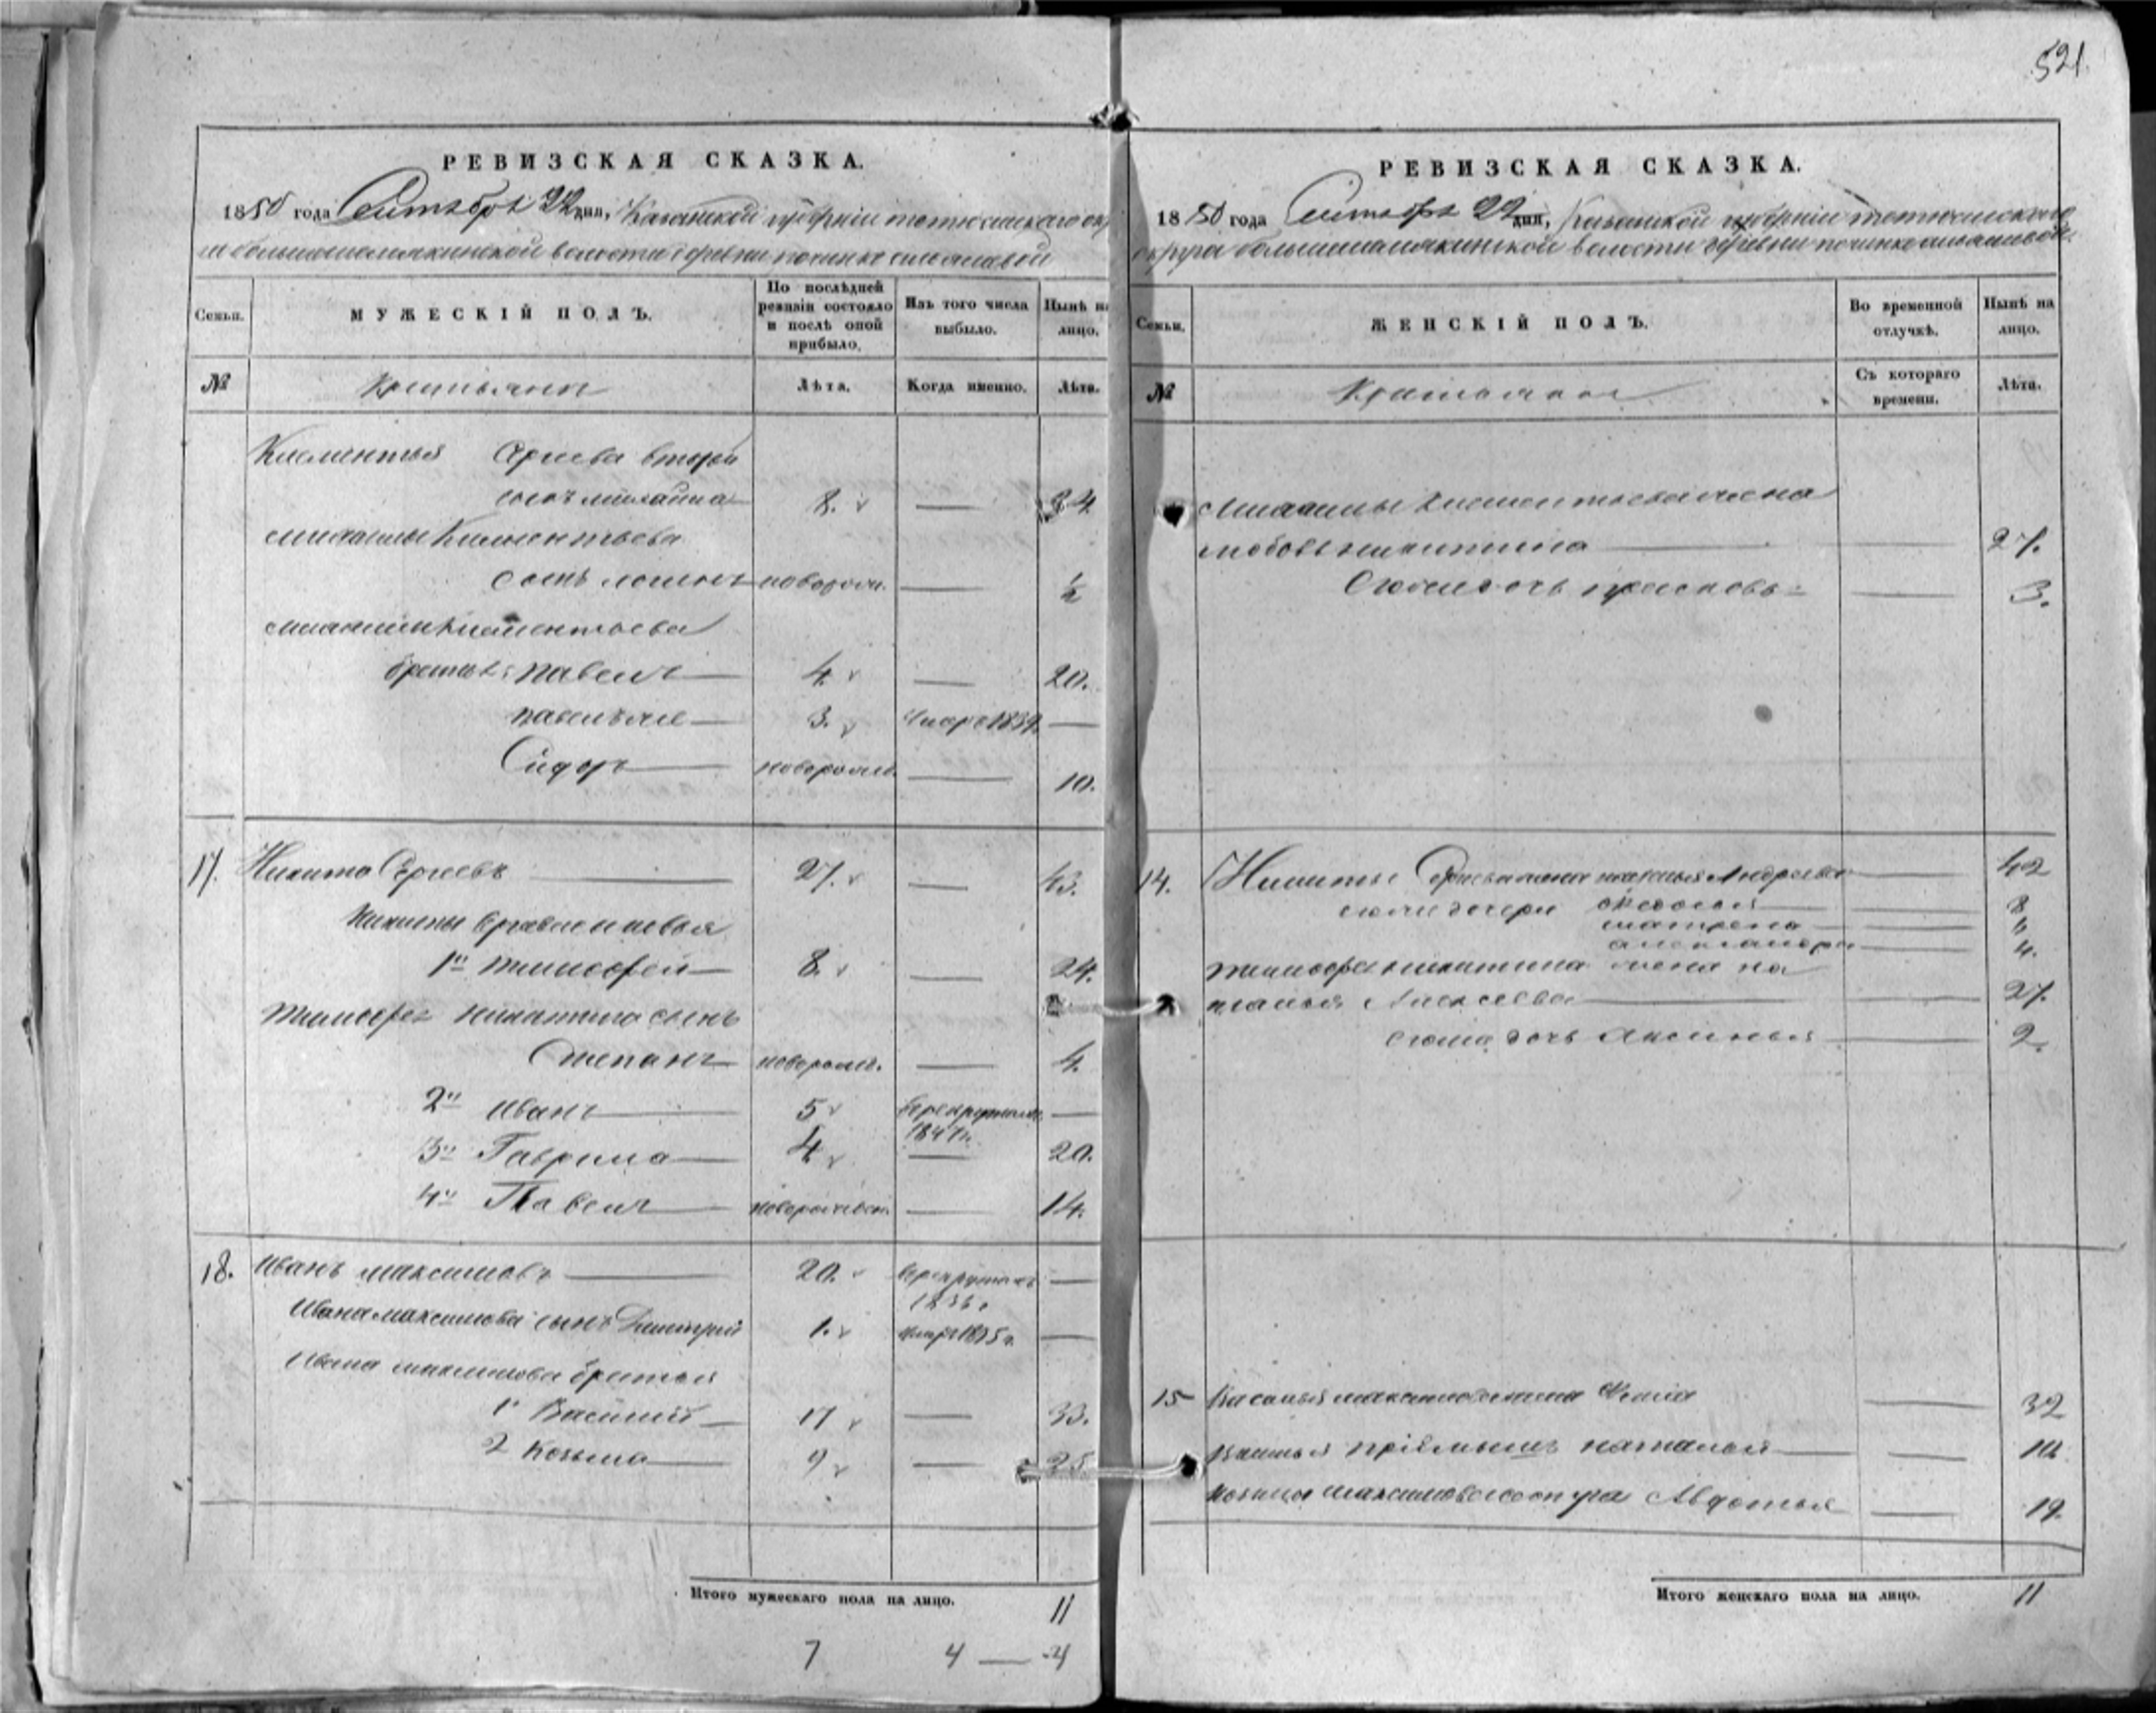 521.
РЕВИЗСКАЯ СКАЗКА.
1850 года Сентября 22 дня, Казанской губерніи тетюшскаго
волости деревни починка
Семьи.
МУЖЕСКІЙ ПОЛЪ.
По послѣдней ревизіи состояло и послѣ оной прибыло.
Изъ того числа выбыло.
Нынѣ на лицо.
№
Крестьяне
Лѣта.
Когда именно.
Лѣта.
Клементья Сергеева второй
сынъ михайла 8. — 24
михайлы Клементьева
сынъ новорож. — ½
михайлы Клементьева
братья: павелъ — 4. — 20.
3. умеръ 1839. —
Сидоръ — новорожд. — 10.
17. Никита Сергеевъ — 27. — 43.
Никиты Сергеева сыновья
1й тимофей — 8. — 24.
тимофея никитина сынъ
Степанъ — новорожд. — 4.
2й иванъ — 5 в рекруты —
1847г.
3й Гаврила — 4 — 20.
4й Павелъ — новорожден. — 14.
18. Иванъ максимовъ — 20. в рекруты —
Ивана максимова сынъ Дмитрий 1. умеръ 1835 г. —
Ивана максимова братья
1 Василий — 17 — 33.
2 Козьма — 9 — 25.
Итого мужескаго пола на лицо. 11
7 4 — 4
РЕВИЗСКАЯ СКАЗКА.
1850 года Сентября 22 дня, Казанской губерніи тетюшскаго
округа волости деревни починка
Семьи.
ЖЕНСКІЙ ПОЛЪ.
Во временной отлучкѣ.
Нынѣ на лицо.
№
Крестьяне
Съ котораго времени.
Лѣта.
Михайлы Клементьева жена
любовь никитина — 27.
его дочь прасковья — 3.
14. Никиты Сергеева жена Андреева — 42
его дочери — 8
матрена —
александра — 4.
тимофея никитина жена на
талья Алексеева — 27.
его дочь Аксинья — 2.
15 Василья максимова жена — 32
Василья приемышъ наталья — 10.
козьмы максимова супруга Авдотья — 19.
Итого женскаго пола на лицо. 11